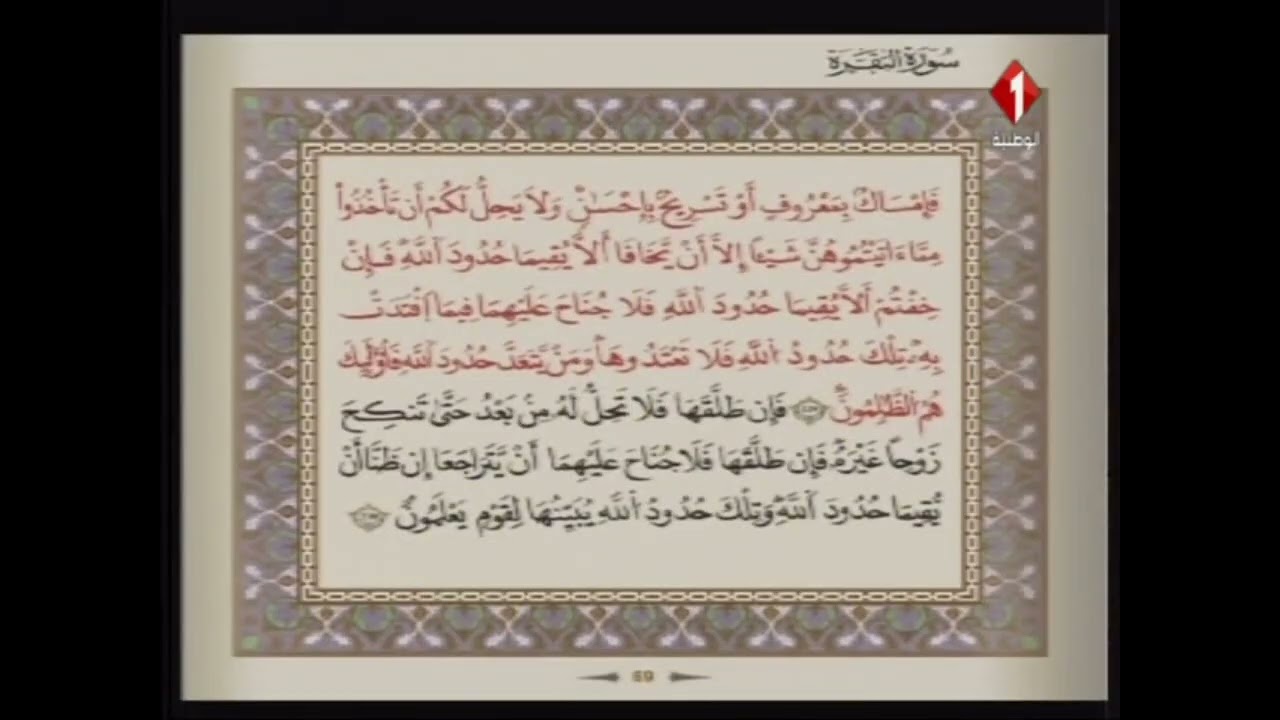 سورة البقرة
1
الوطنية
فَإِمْسَاكٌ بِمَعْرُوفٍ أَوْ تَسْرِيحٌ بِإِحْسَٰنٍ وَلَا يَحِلُّ لَكُمْ أَن تَأْخُذُواْ
مِمَّا ءَاتَيْتُمُوهُنَّ شَيْـًٔا إِلَّا أَنْ يَّخَافَا أَلَّا يُقِيمَا حُدُودَ اَللَّهِ فَإِنْ
خِفْتُمْ أَلَّا يُقِيمَا حُدُودَ اَللَّهِ فَلَا جُنَاحَ عَلَيْهِمَا فِيمَا اَفْتَدَتْ
بِهِۦ تِلْكَ حُدُودُ اُللَّهِ فَلَا تَعْتَدُوهَا وَمَنْ يَّتَعَدَّ حُدُودَ اَللَّهِ فَأُوْلَٰٓئِكَ
هُمُ اُلظَّٰلِمُونَ فَإِن طَلَّقَهَا فَلَا تَحِلُّ لَهُۥ مِنۢ بَعْدُ حَتَّىٰ تَنكِحَ
زَوْجاً غَيْرَهُۥ فَإِن طَلَّقَهَا فَلَا جُنَاحَ عَلَيْهِمَا أَنْ يَّتَرَاجَعَا إِن ظَنَّا أَنْ
يُّقِيمَا حُدُودَ اَللَّهِ وَتِلْكَ حُدُودُ اُللَّهِ يُبَيِّنُهَا لِقَوْمٍ يَعْلَمُونَ
69